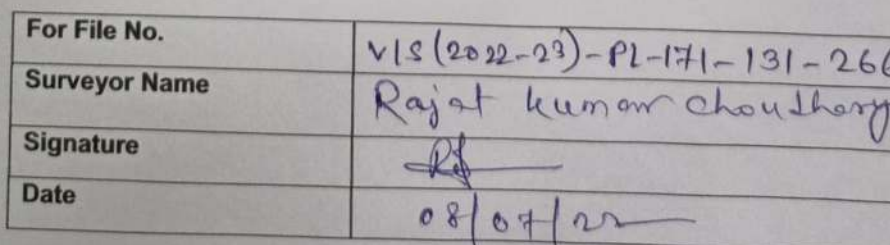 For File No. VIS(2022-23)-PL-171-131-266
Surveyor Name Rajat kumar Choudhary
Signature
Date 08/07/22